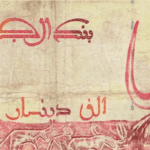 بنك الجـ
ألف دينار